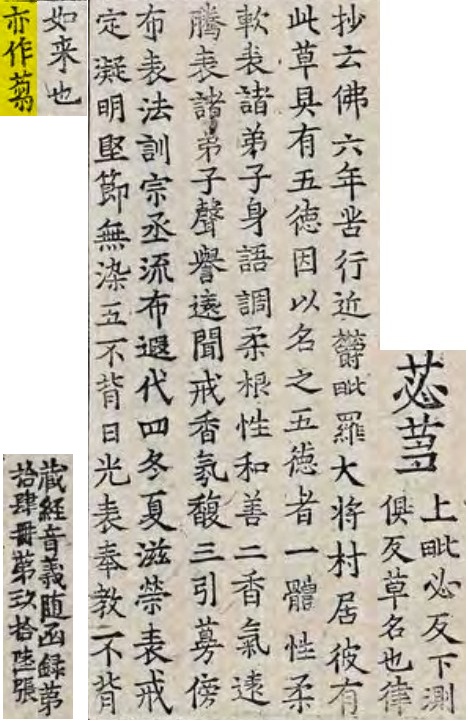 苾芻
上毗必反下測
俱反草名也律
抄云佛六年苦行近欝毗羅大将村居彼有
此草具有五徳因以名之五徳者一體性柔
軟表諸弟子身語調柔根性和善二香氣遠
騰表諸弟子聲譽遠聞戒香氛馥三引蔓傍
布表法訓宗丞流布遐代四冬夏滋榮表戒
定凝明堅節無染五不背日光表奉教不背
如来也
亦作蒭
藏經音義随函録第
拾肆冊第玖拾陸張